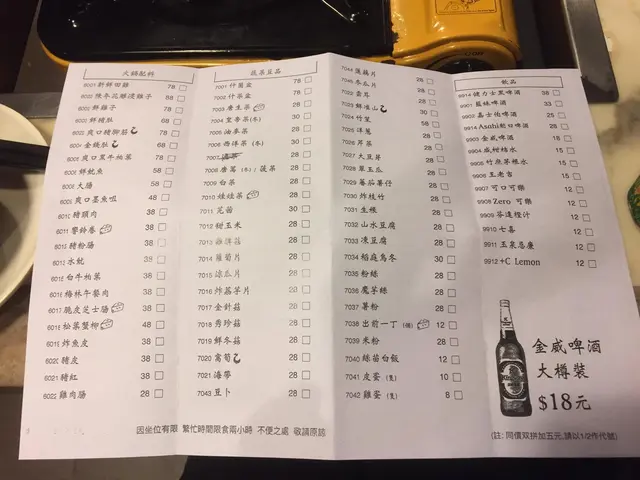 火鍋配料
6001 新鮮田雞 78
78
6003 鮮雞子 78
6004 鮮豬肚 68
6005 爽口豬腳筋 78
金錢肚 68
爽口草牛柏葉 58
鮮魷魚 58
大腸 58
爽口墨魚咀 48
豬頭肉 38
響鈴卷 48
6012 豬粉腸 38
水魷 38
6015 白牛柏葉 38
6016 梅林午餐肉 38
6017 脆皮芝士腸 38
6018 松葉蟹柳 48
6019 炸魚皮 38
6020 豬皮 38
6021 豬紅 38
6022 雞肉腸 28
蔬菜豆品
7001 什菌盆 78
7002 什菜盆 78
7003 唐生菜 28
7004 皇帝菜(冬) 30
7005 油麥菜 28
7006 西洋菜(冬) 30
7007 28
7008 28
7009 白菜 28
7010 娃娃菜 28
7011 芫茜 30
7012 甜玉米 28
7013 28
7014 蘿蔔片 28
7015 涼瓜片 28
7016 炸荔芋片 28
7017 金針菇 28
7018 秀珍菇 28
7019 鮮冬菇 28
7020 萵筍 28
7021 海帶 28
7043 豆卜 28
7044 蓮藕片 28
7045 冬瓜片 28
7022 雲耳 28
7023 鮮淮山 30
7024 竹笙 58
7025 洋蔥 28
7026 芹菜 28
7027 大豆芽 28
7028 翠玉瓜 28
7029 蕃茄薯仔 28
7030 炸枝竹 28
7031 生根 28
7032 山水豆腐 28
7033 凍豆腐 28
7034 稻庭烏冬 30
7035 粉絲 28
7036 魔芋絲 28
7037 薯粉 28
7038 出前一丁 12
7039 米粉 28
7040 絲苗白飯 12
7041 皮蛋 (隻) 10
7042 雞蛋 (隻) 8
飲品
9914 健力士黑啤酒 38
9901 藍妹啤酒 33
9902 嘉士伯啤酒 25
9914 Asahi朝日啤酒 28
9903 金威啤酒 15
9904 咸柑桔水 15
9905 竹庶茅根水 15
9906 王老吉 15
9907 可口可樂 12
9908 Zero 可樂 12
9909 忌廉橙汁 12
9910 七喜 12
9911 玉泉忌廉 12
9912 +C Lemon 12
金威啤酒
大樽裝
$18元
因坐位有限 繁忙時間限食兩小時 不便之處 敬請原諒
(註: 同價双拼加五元,請以1/2作代號)